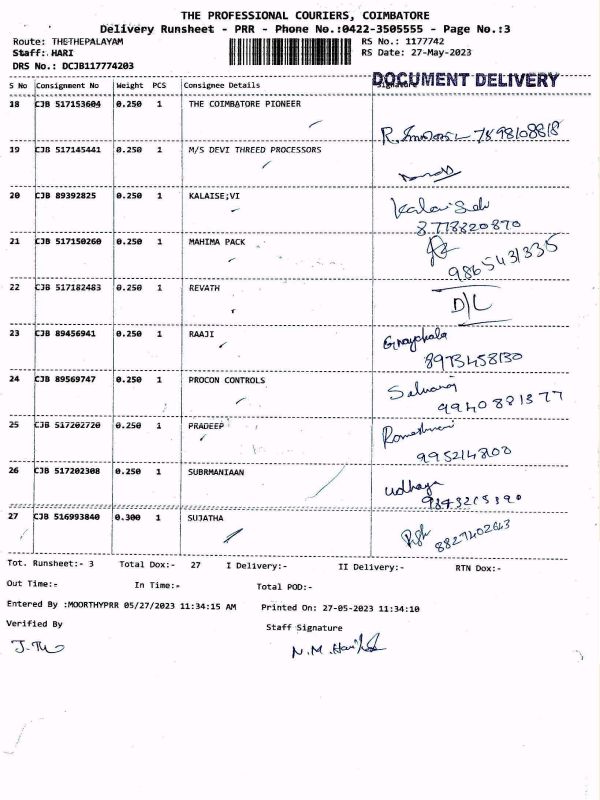 THE PROFESSIONAL COURIERS, COIMBATORE
Delivery Runsheet - PRR - Phone No.:0422-3505555 - Page No.:3
Route: THETHEPALAYAM RS No.: 1177742
Staff: HARI RS Date: 27-May-2023
DRS No.: DCJB117774203
DOCUMENT DELIVERY
S No Consignment No Weight PCS Consignee Details Signature
18 CJB 517153604 0.250 1 THE COIMBATORE PIONEER
19 CJB 517145441 0.250 1 M/S DEVI THREED PROCESSORS
20 CJB 89392825 0.250 1 KALAISE;VI
8778820870
21 CJB 517150260 0.250 1 MAHIMA PACK
9865431335
22 CJB 517182483 0.250 1 REVATH D/L
23 CJB 89456941 0.250 1 RAAJI
8973458130
24 CJB 89569747 0.250 1 PROCON CONTROLS
9940881377
25 CJB 517202720 0.250 1 PRADEEP
26 CJB 517202308 0.250 1 SUBRMANIAAN
udhaya
27 CJB 516993840 0.300 1 SUJATHA
8827402643
Tot. Runsheet:- 3 Total Dox:- 27 I Delivery:- II Delivery:- RTN Dox:-
Out Time:- In Time:- Total POD:-
Entered By :MOORTHYPRR 05/27/2023 11:34:15 AM Printed On: 27-05-2023 11:34:10
Verified By Staff Signature